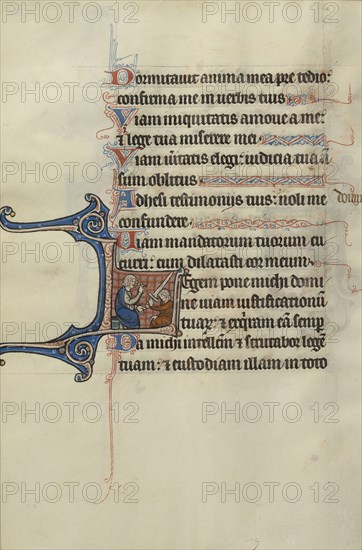 Dormitauit anima mea pre tedio:
confirma me in uerbis tuis
Viam iniquitatis amoue a me:
& lege tua miserere mei
Viam ueritatis elegi: iudicia tua nõ
sum oblitus
Adhesi testimonijs tuis: noli me
domine
confundere
Uiam mandatorum tuorum cu
curri: cum dilatasti cor meum
Legem pone michi domi
ne uiam iustificationũ
tuarũ: & exquiram eã semp
Da michi intellectũ & scrutabor legẽ
tuam: & custodiam illam in toto
PHOTO12